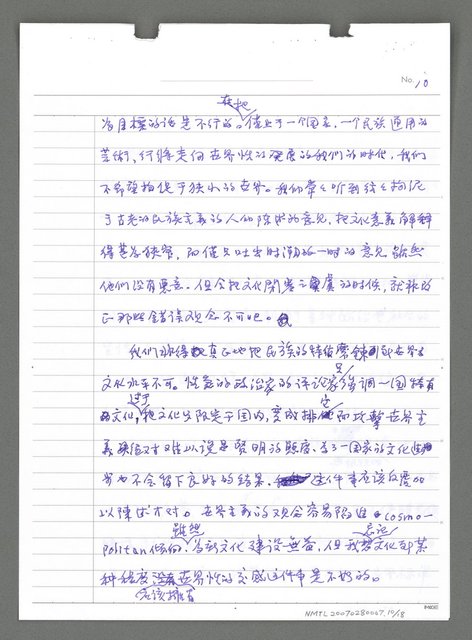 No. 10
在地
為目標的話是不行的。僅止于一個国家,一個民族通用的
芸術,行將走向世界性的發展的我們的時代,我們
不希望拘促于狭小的世界。我們常々听到終々拘泥
于古老的民族主義的人們陳腐的意見,把文化意義解釋
得甚為狭窄,而僅只吐出時潮的一時的意見 雖然
他們没有惡意。但令把文化閉塞之虞的時候,就非改
正那些錯誤观念不可吧。
我們非得真正地把民族的特質磨鍊到世界
文化水平不可。性急的政治家的評論家只強調一国特有
的文化,過于把文化只限定于国内,变成排他而攻擊世界主
義 难以說是賢明的態度,于一国家的文化
也不会留下良好的結果。這件事应該反覆加
以陳述才对。世界主義的观念容易陷進 cosmo-
politan傾向,雖然為新文化建設無益,但我忘記文化在某
種程度应該擁有世界性的交感這件事是不好的。
NMTL20070280007, 10/18